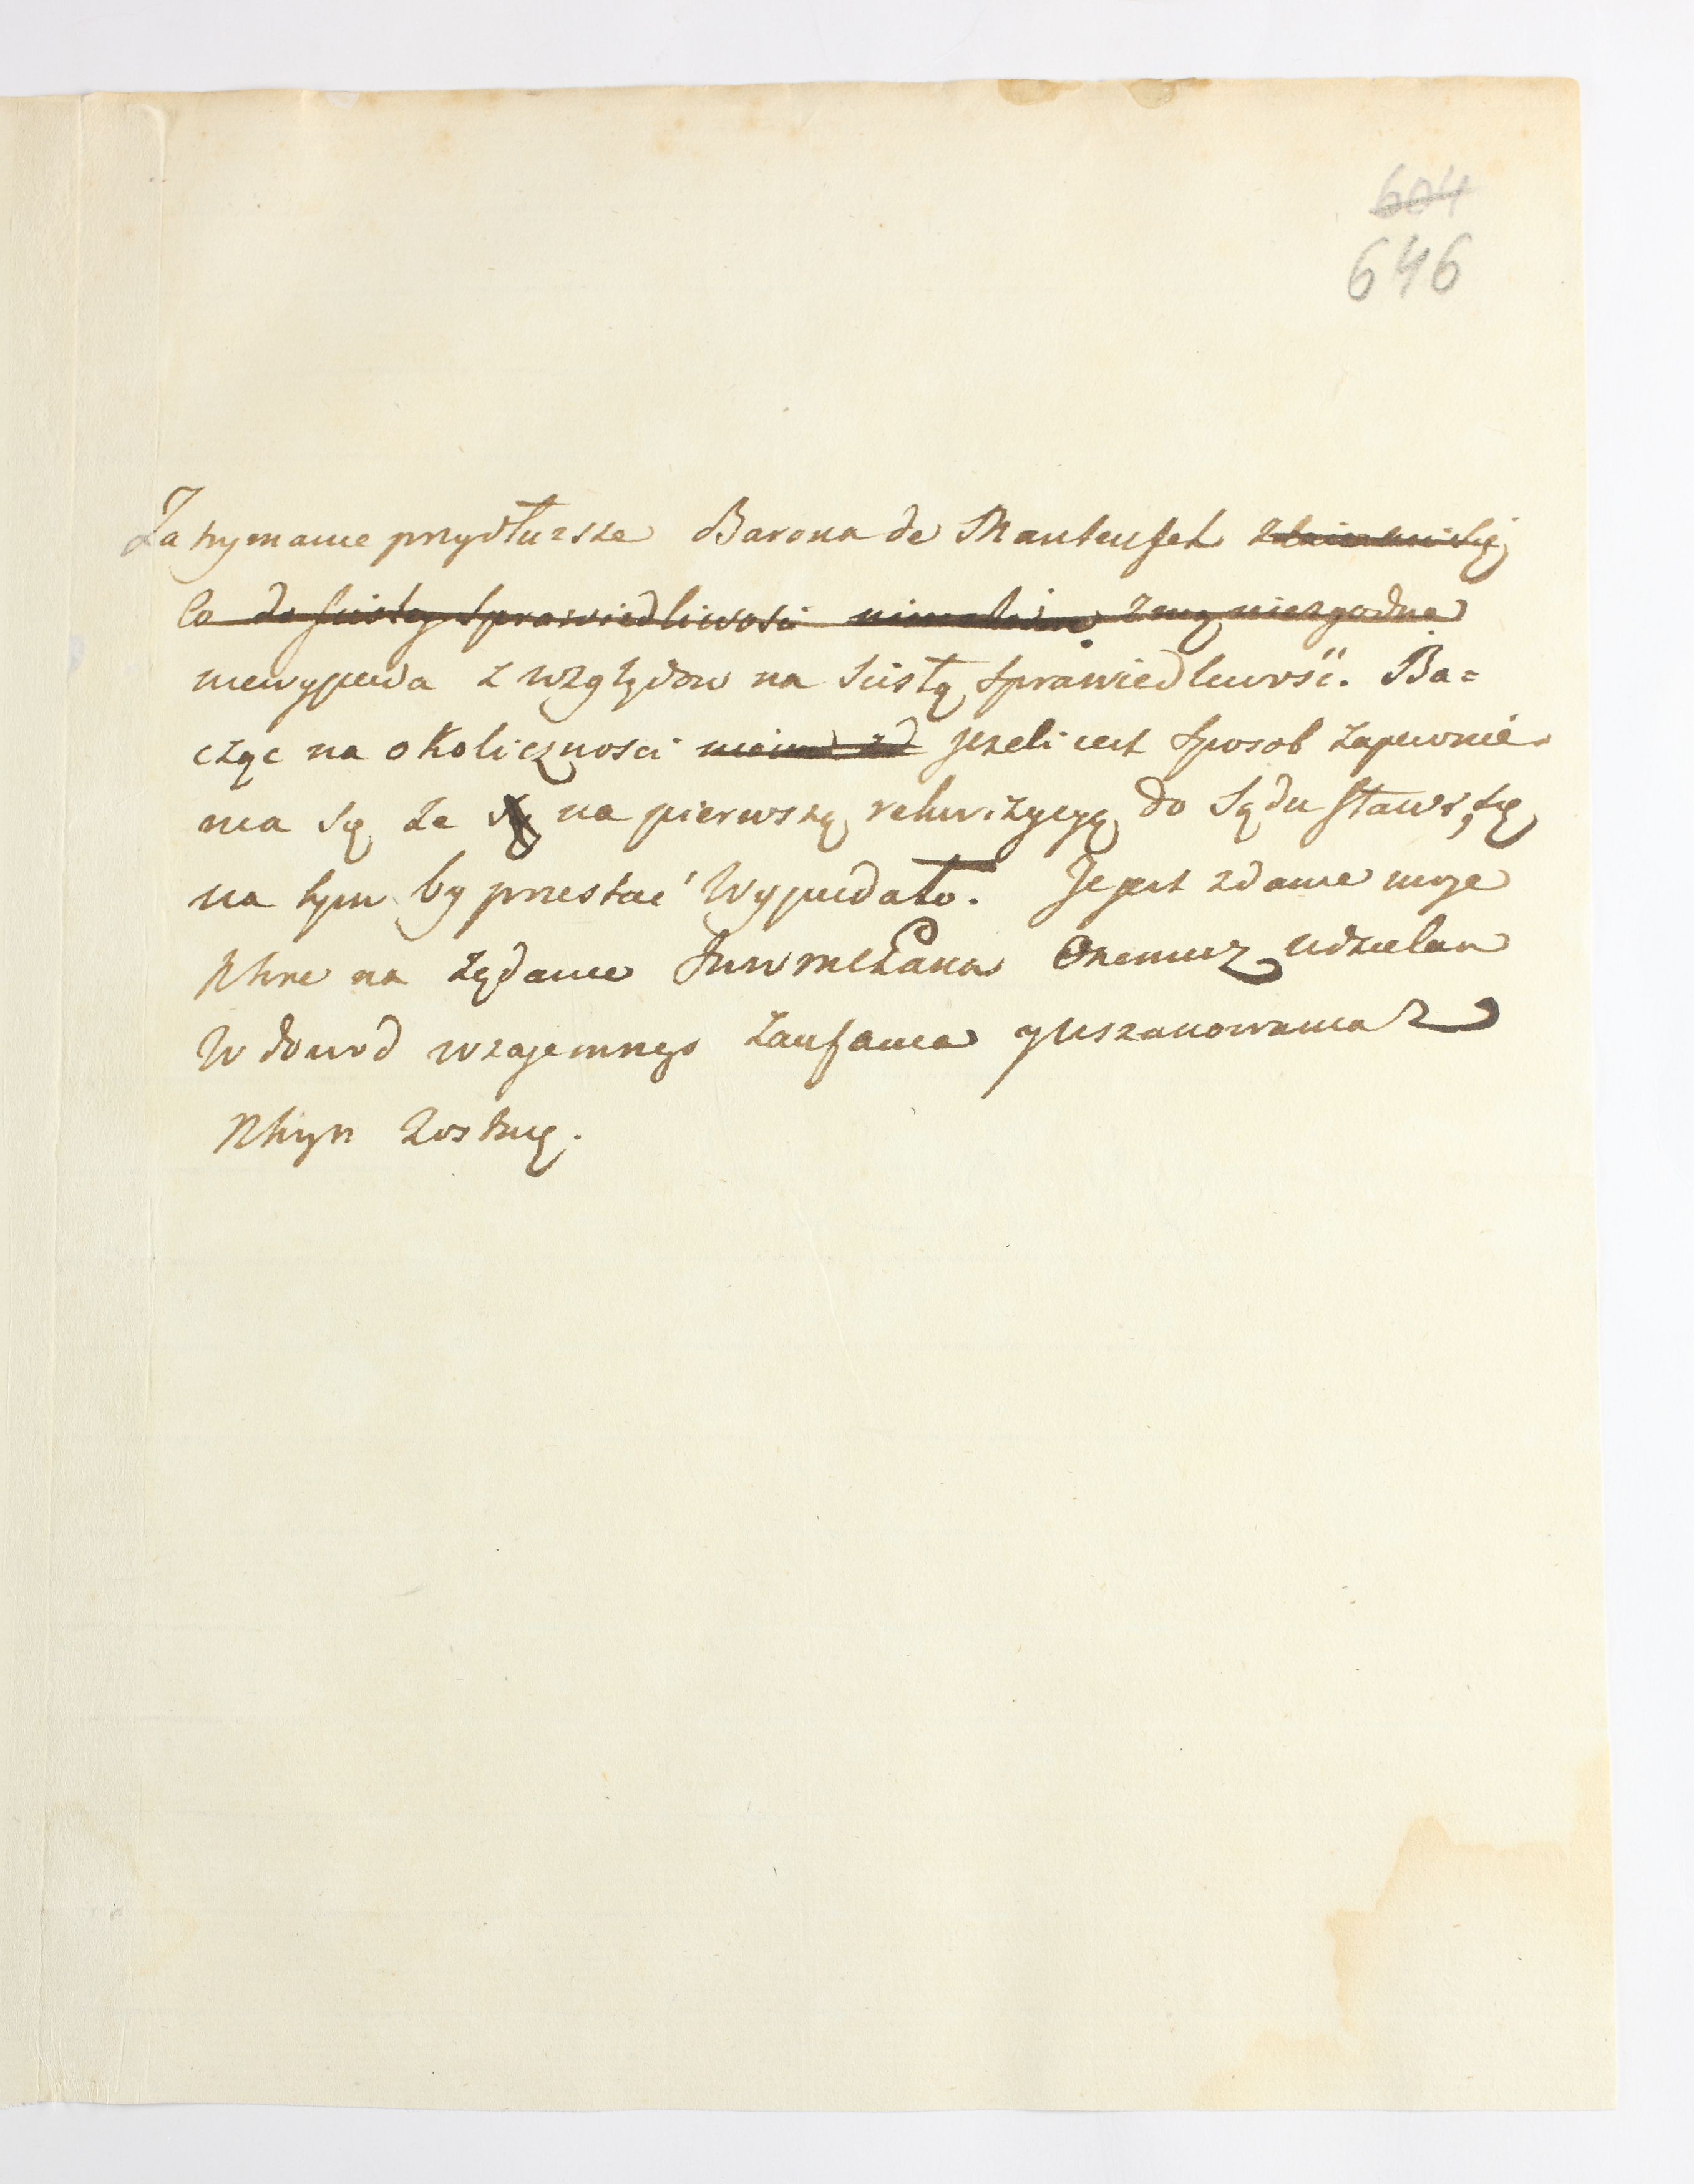 604
646
Zatrzymanie przydłuzsze Barona de Manteufel
Co do scisley sprawiedliwosci zemą niezgodne
niewypada z względow na scistą sprawiedliwość. Ba=
cząc na okolicznosci jezeli iest sposob zapewnie-
nia Są ze na pierwszą rekwizycyą do Sądu stawi się
na tym by przestać Wypadało. Te jest zdanie moje
Ktore na żądanie udzielam
W dowod wzajemnego zaufania y uszanowania z
Ktorym Zostaię.